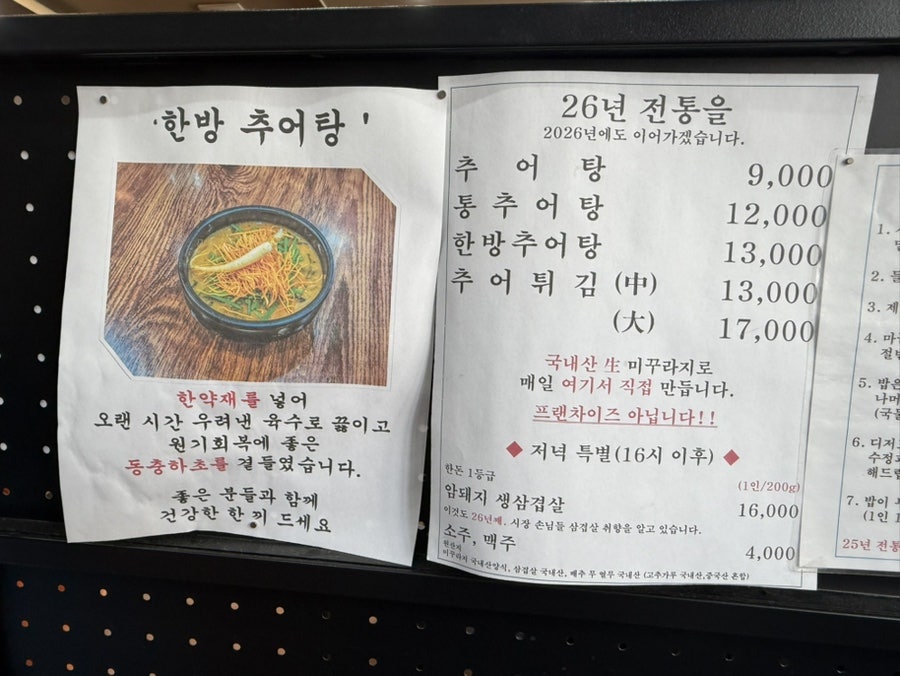 '한방 추어탕'
한약재를 넣어
오랜 시간 우려낸 육수로 끓이고
원기회복에 좋은
동충하초를 곁들였습니다.
좋은 분들과 함께
건강한 한 끼 드세요
26년 전통을
2026년에도 이어가겠습니다.
추 어 탕 9,000
통 추 어 탕 12,000
한방추어탕 13,000
추 어 튀 김 (中) 13,000
(大) 17,000
국내산 生 미꾸라지로
매일 여기서 직접 만듭니다.
프랜차이즈 아닙니다!!
◆ 저녁 특별(16시 이후) ◆
한돈 1등급 (1인/200g)
암돼지 생삼겹살 16,000
이것도 26년째. 시장 손님들 삼겹살 취향을 알고 있습니다.
소주, 맥주 4,000
원산지
미꾸라지 국내산양식, 삼겹살 국내산, 배추 무 얼무 국내산 (고추가루 국내산,중국산 혼합)
1.
2.
3. 제
4. 마
절
5. 밥은
나머
(국물
6. 디저
수정과
해드립
7. 밥이
(1인 1
25년 전통